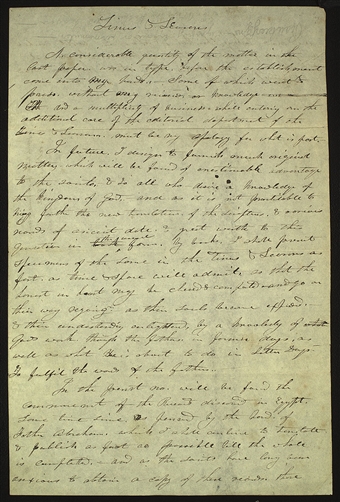 Times & Seasons
A considerable quantity of the matter in the
last paper was in type, before the establishment
came into my hands. Some of which went to
press without my
and a multiplicity of business while entering on the
additional care of the editorial department of the
Times & Seasons must be my apology for what is past.
In future, I design to furnish much original
matter, which will be found of inestimable advantage
to the saints, & to all who desire a knowledge of
the kingdom of God, and as it is not practicable to
bring forth the new translation of the scriptures, & various
records of ancient date, & great worth to this
generation in
form, by books, I shall print
specimens of the same in the Times & Seasons as
fast as time & space will admit, so that the
honest in heart may be cheered & comforted and go on
their way rejoicing, as their souls become expanded
& their understanding enlightened, by a knowledge of
Gods work through the fathers in former days, as
well as what He is about to do in latter days
To fulfil the words of the fathers.
In the present no. will be found the
commencement of the Records discovered in Egypt,
some time since, as penned by the hand of
Father Abraham, which I shall continue to translate
& publish as fast as possible till the whole
is completed, and as the saints have long been
anxious to obtain a copy of these records, those